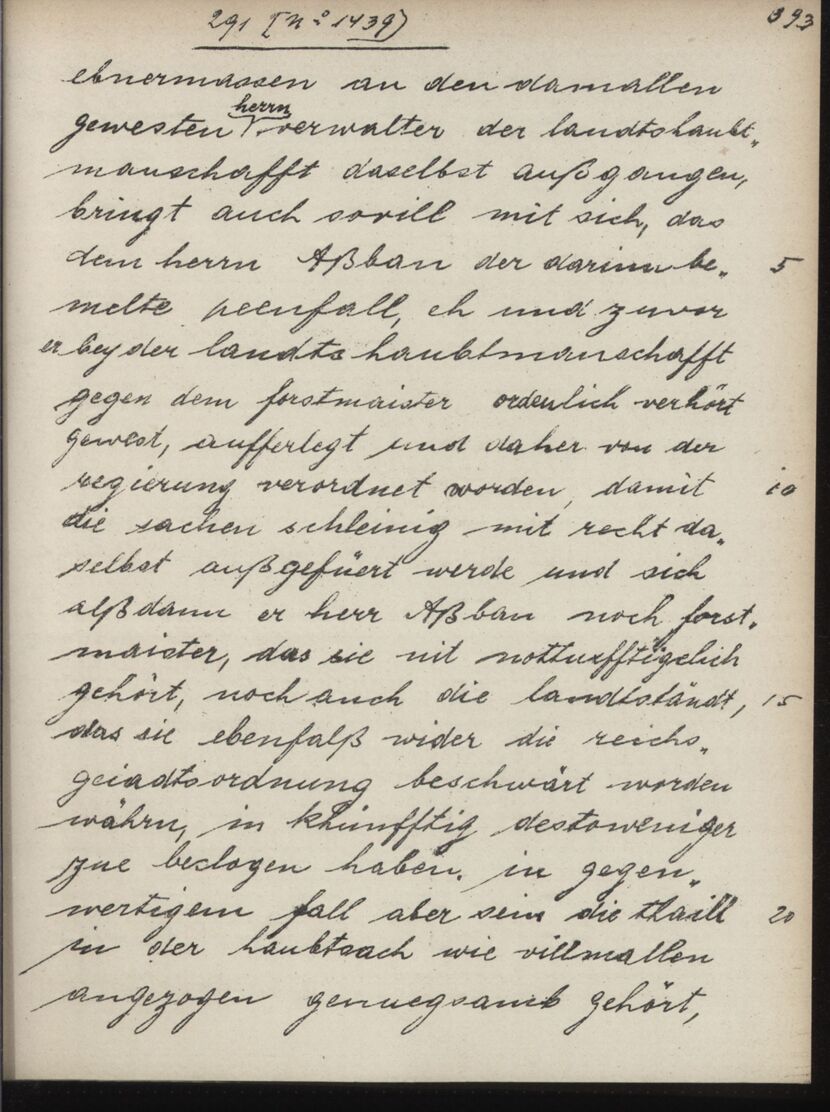 291 [N° 1439)
393
ebnermassen an den damallen
gewesten herrn verwalter der landtshaubt„
manschafft daselbst außgangen,
bringt auch sovill mit sich, das
dem herrn Aßban der darinn be„ 5
melte peenfall, eh und zuvor
er bey der landtshaubtmanschafft
gegen dem forstmaister ordenlich verhört
gewest, aufferlegt und daher von der
regierung verordnet worden, damit 10
die sachen schleinig mit recht da„
selbst außgefüert werde und sich
alßdann er herr Aßban noch forst„
maister, das sie nit notturfftigelich
gehört, noch auch die landtständt, 15
das sie ebenfalß wider die reichs„
geiadtsordnung beschwärt worden
währn, in khünfftig destoweniger
zue beclogen haben. in gegen„
wertigem fall aber sein die thaill 20
in der haubtsach wie villmallen
angezogen genuegsamb gehört,